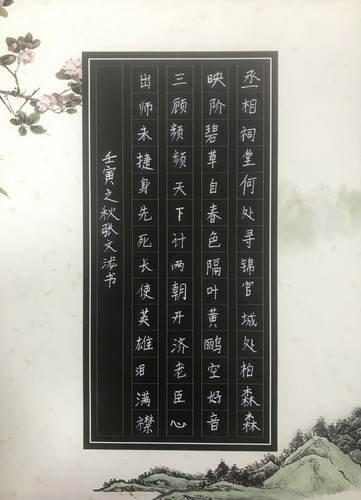 丞相祠堂何处寻锦官城处柏森森
映阶碧草自春色隔叶黄鹂空好音
三顾频频天下计两朝开济老臣心
出师未捷身先死长使英雄泪满襟
壬寅之秋张文书